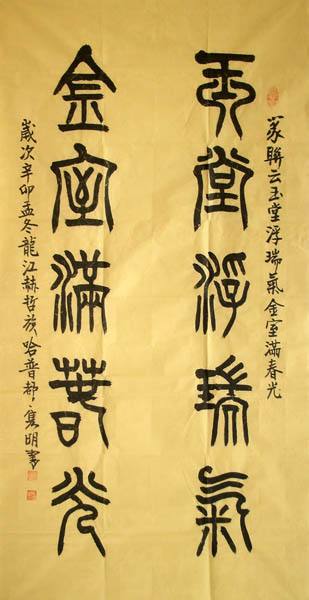 篆聯云玉堂浮瑞氣金室滿春光
玉堂浮瑞氣
金室滿春光
歲次辛卯孟冬龍江赫哲族哈普都·隽明書